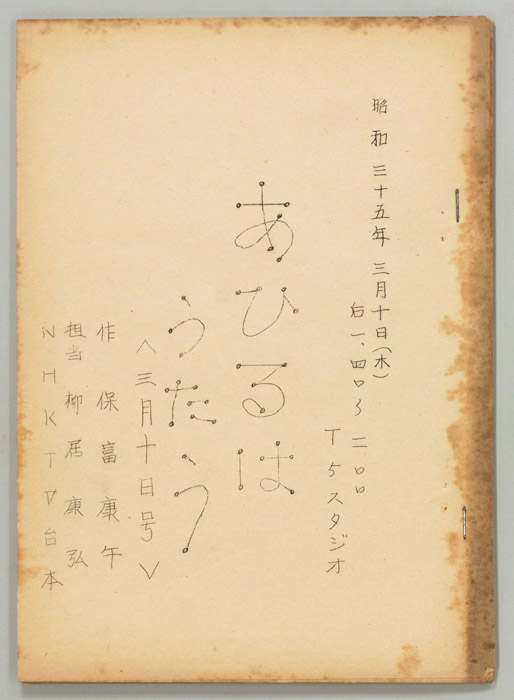 昭和三十五年三月十日(木)
后一、四〇〜二〇〇
T5スタジオ
あひるは
うたう
<三月十日号>
作 保富康午
担当 柳居康弘
NHKTV台本